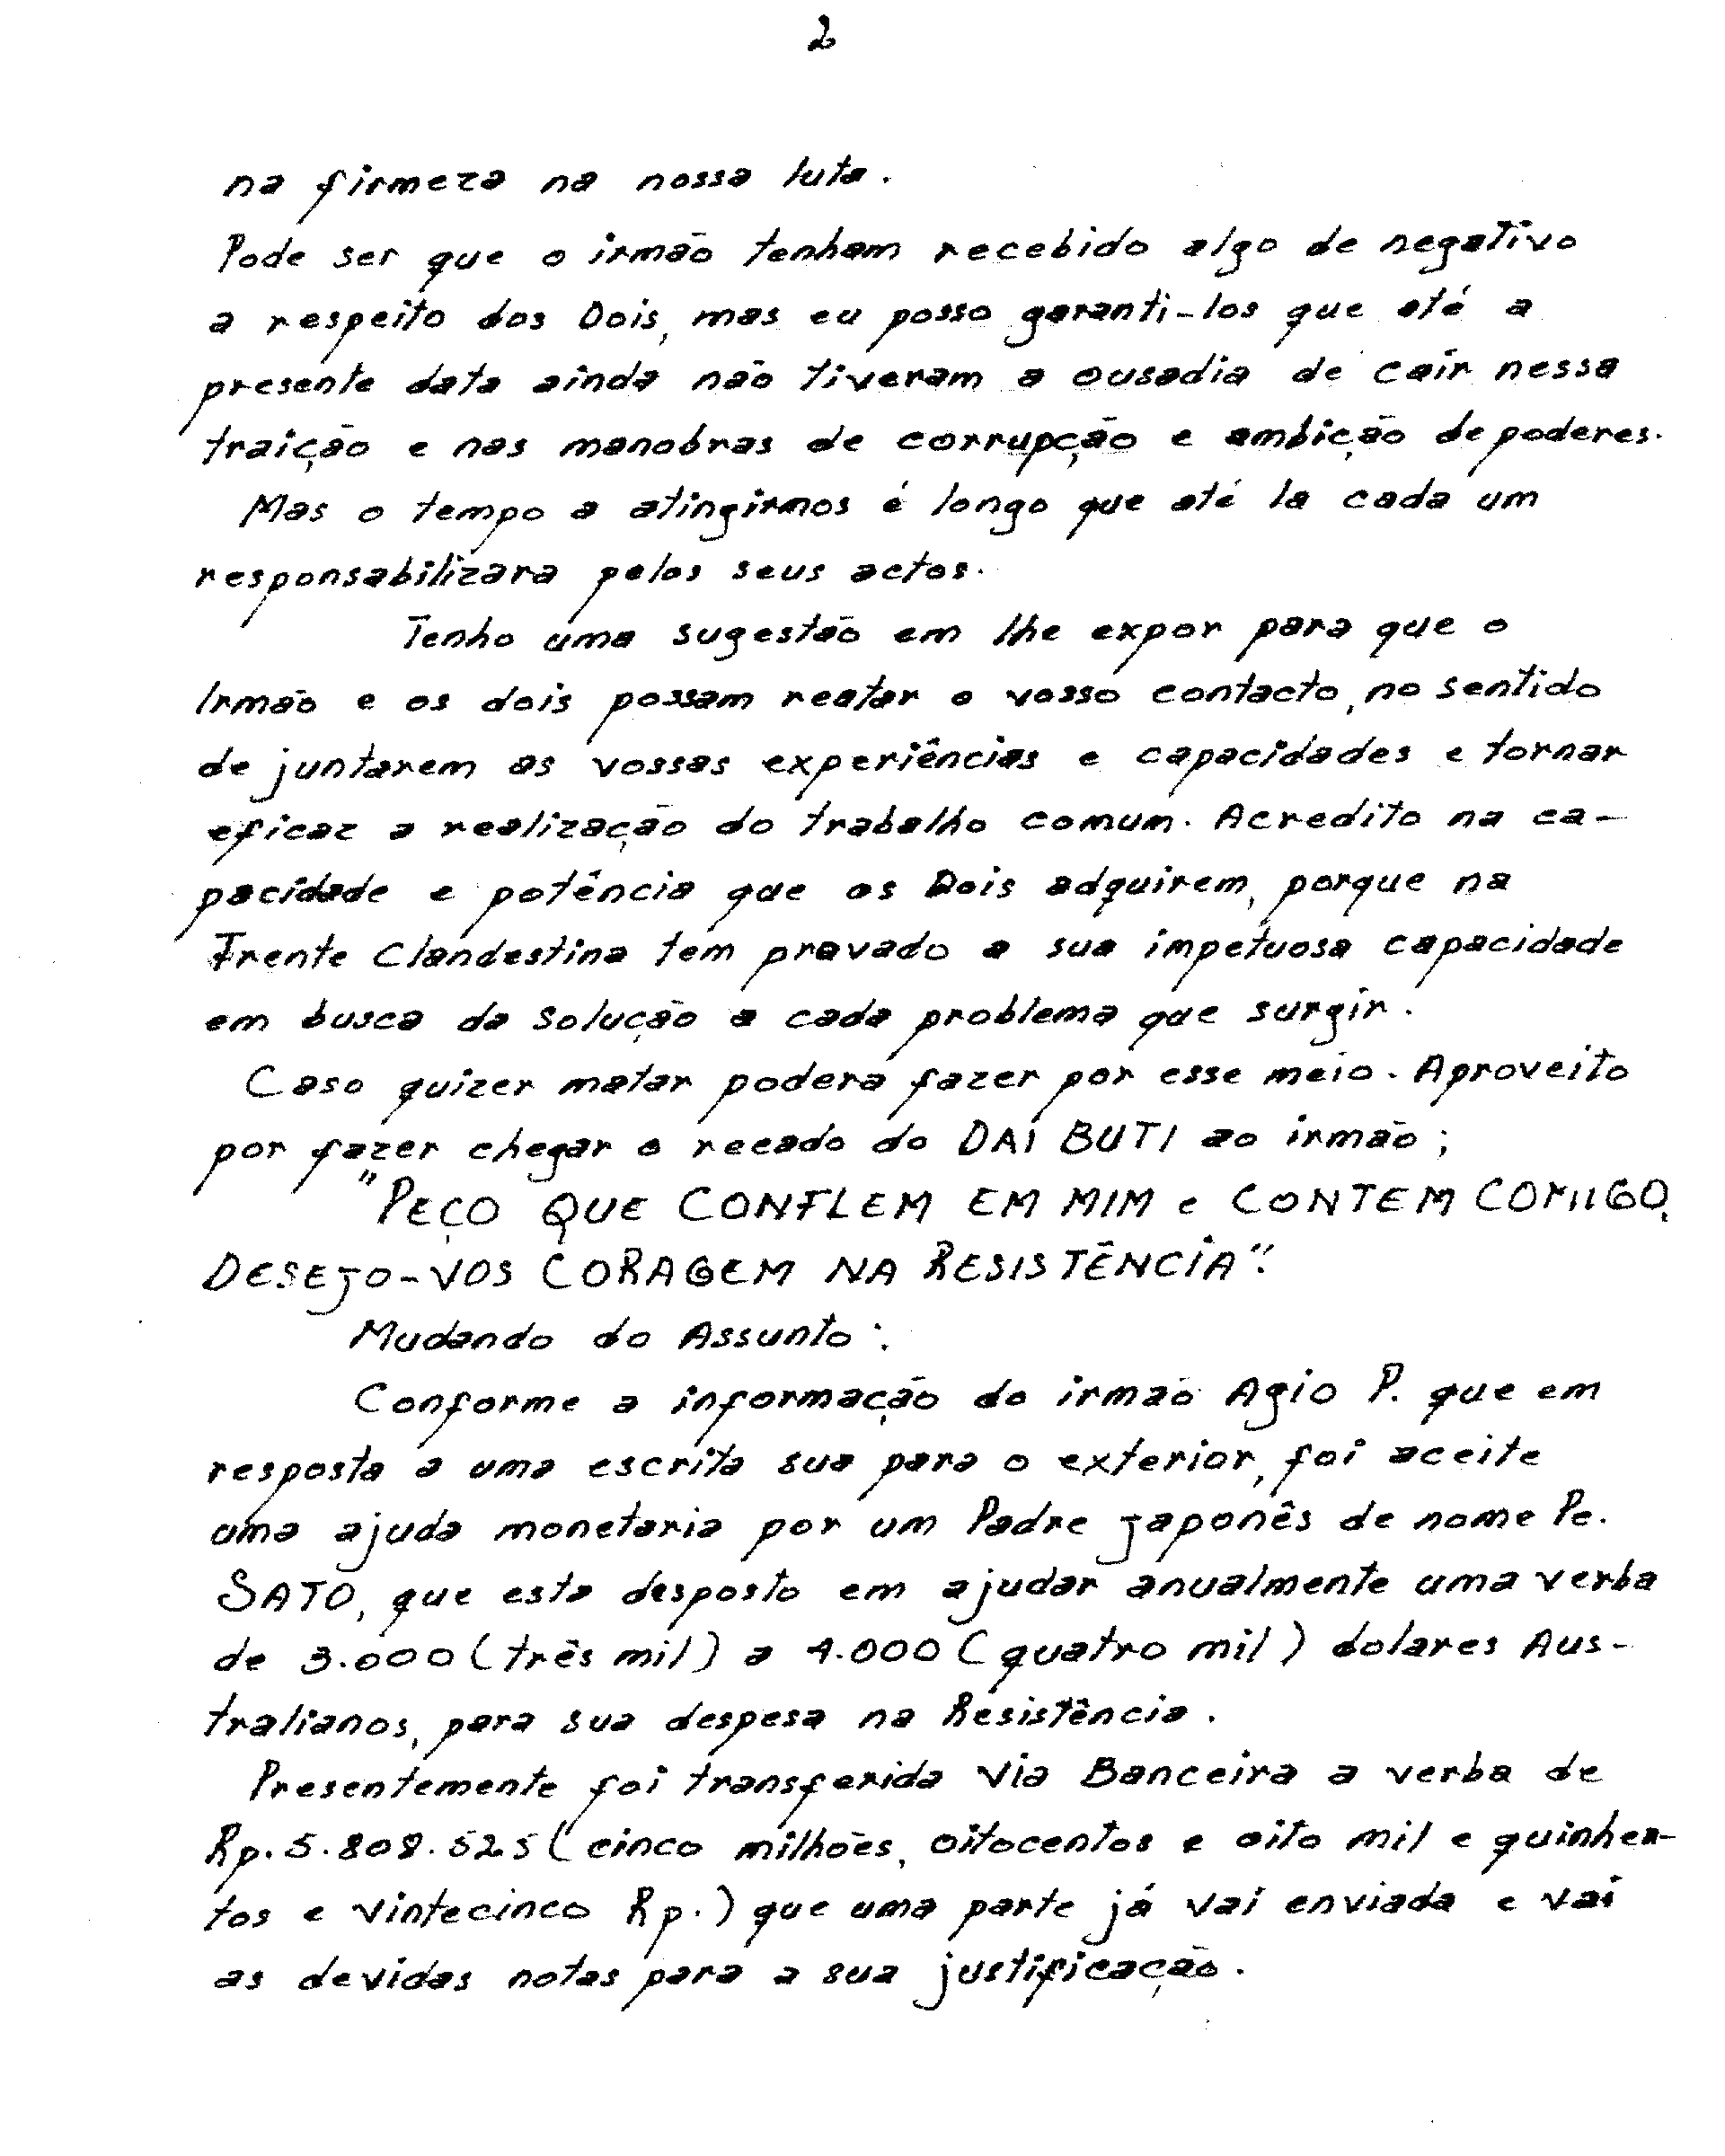 2
na firmeza na nossa luta.
Pode ser que o irmão tenham recebido algo de negativo
a respeito dos Dois, mas eu posso garanti-los que até a
presente data ainda não tiveram a ousadia de cair nessa
traição e nas manobras de corrupção e ambição de poderes.
Mas o tempo a atingirmos é longo que até la cada um
responsabilizara pelos seus actos.
Tenho uma sugestão em lhe expor para que o
Irmão e os dois possam reatar o vosso contacto, no sentido
de juntarem as vossas experiências e capacidades e tornar
eficaz a realização do trabalho comum. Acredito na ca-
pacidade e potência que os Dois adquirem, porque na
Frente Clandestina tem provado a sua impetuosa capacidade
em busca da solução a cada problema que surgir.
Caso quizer matar podera fazer por esse meio. Aproveito
por fazer chegar o recado do DAI BUTI ao irmão;
"PEÇO QUE CONFLEM EM MIM e CONTEM COMIIGO,
DESEJO-VOS CORAGEM NA RESISTÊNCIA".
Mudando do Assunto:
Conforme a informação do irmão Agio P. que em
resposta a uma escrita sua para o exterior, foi aceite
uma ajuda monetaria por um Padre Japonês de nome Pe.
SATO, que esta desposto em ajudar anualmente uma verba
de 3.000 (três mil) a 4.000 (quatro mil) dolares Aus-
tralianos, para sua despesa na Resistência.
Presentemente foi transferida via Banceira a verba de
Rp. 5.808.525 (cinco milhões, oitocentos e oito mil e quinhen-
tos e vintecinco Rp.) que uma parte já vai enviada e vai
as devidas notas para a sua justificação.